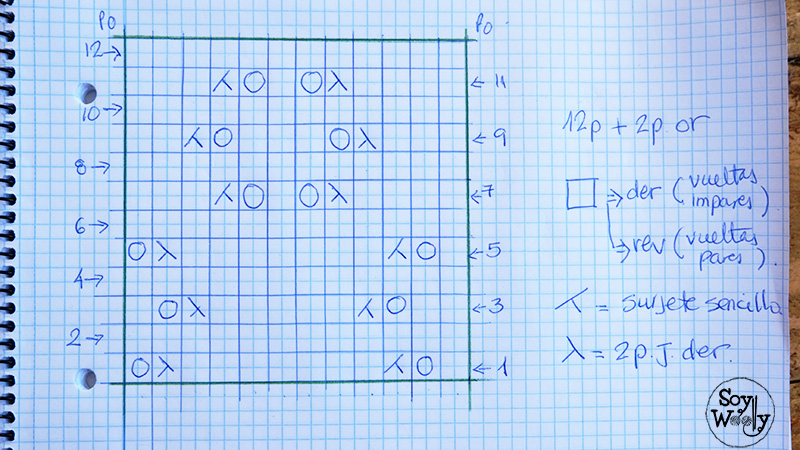 po po
12→
⋌ O O λ ← 11
10→
⋌ O O λ ← 9
8→
⋌ O O λ ← 7
6→
O λ ⋌ O ← 5
4→
O λ ⋌ O ← 3
2→
O λ ⋌ O ← 1
12p + 2p. or
□ → der (vueltas
impares)
→ rev (vueltas
pares).
⋌ = surjete sencillo
λ = 2p. J. der.
Soy
Woolly